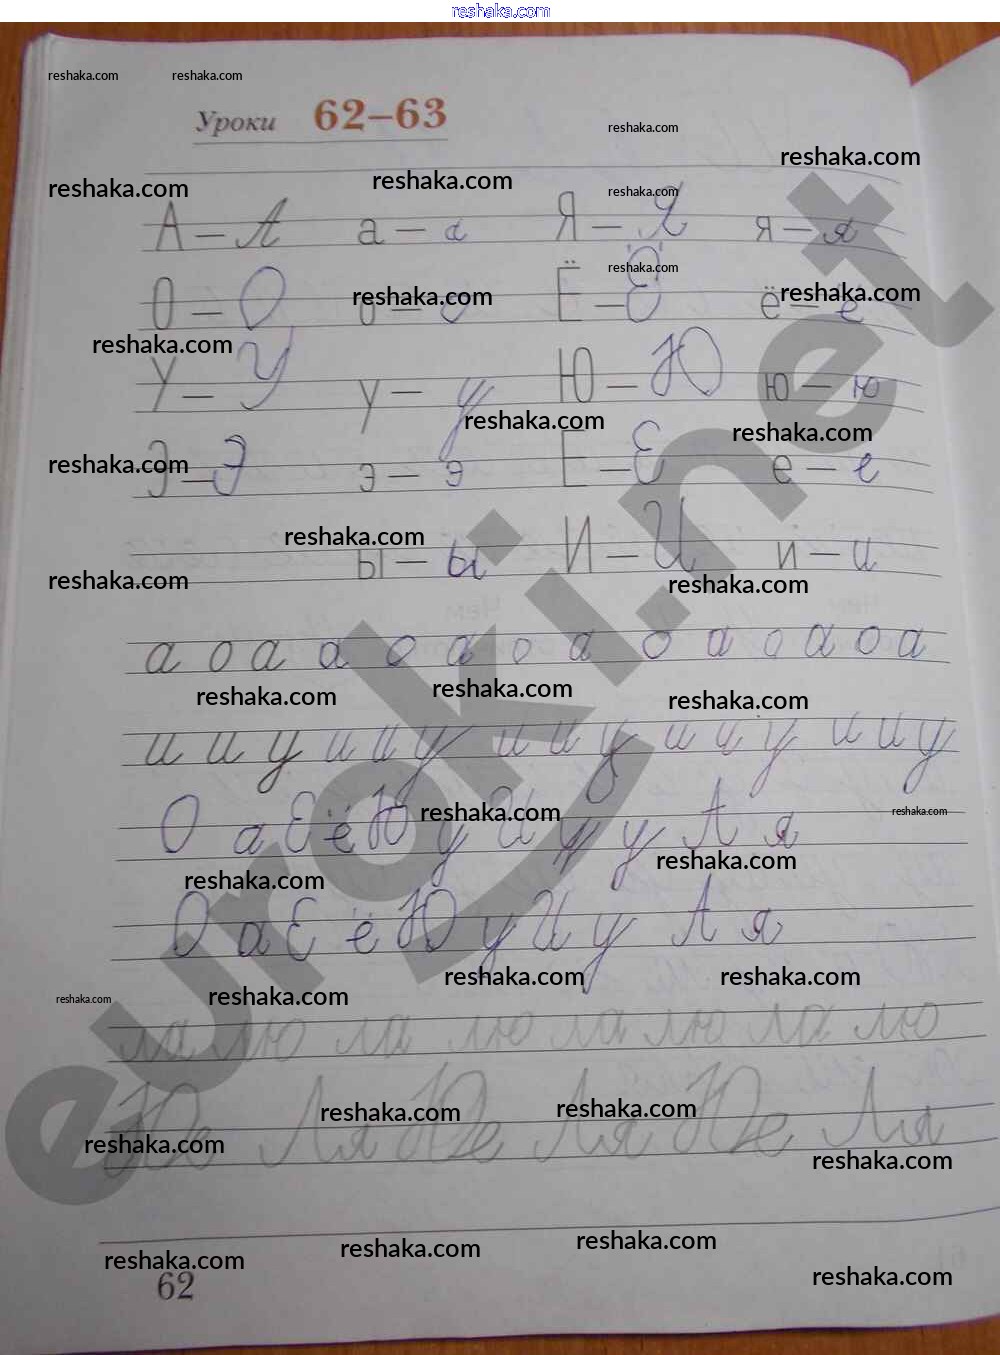 reshaka.com
reshaka.com reshaka.com
Уроки 62–63
reshaka.com
reshaka.com
reshaka.com reshaka.com
reshaka.com
А – А а – а Я – Я я – я
reshaka.com
О – О о – о Ё – Ё ё – ё
reshaka.com reshaka.com
reshaka.com
У – У у – у Ю – Ю ю – ю
reshaka.com reshaka.com
Э – Э э – э Е – Е е – е
reshaka.com
reshaka.com
ы – ы И – И и – и
reshaka.com reshaka.com
а о а а о а о а о а о а о а
reshaka.com reshaka.com reshaka.com
и и у и и у и и у и и у и и у
reshaka.com reshaka.com
О а Е ё Ю у И у у А я
reshaka.com reshaka.com
О а Е ё Ю у И у А я
reshaka.com reshaka.com reshaka.com
reshaka.com
ла лю ла лю ла лю ла лю
reshaka.com reshaka.com
Ля Ля Ля
reshaka.com reshaka.com
reshaka.com reshaka.com reshaka.com
62 reshaka.com
euroki.net